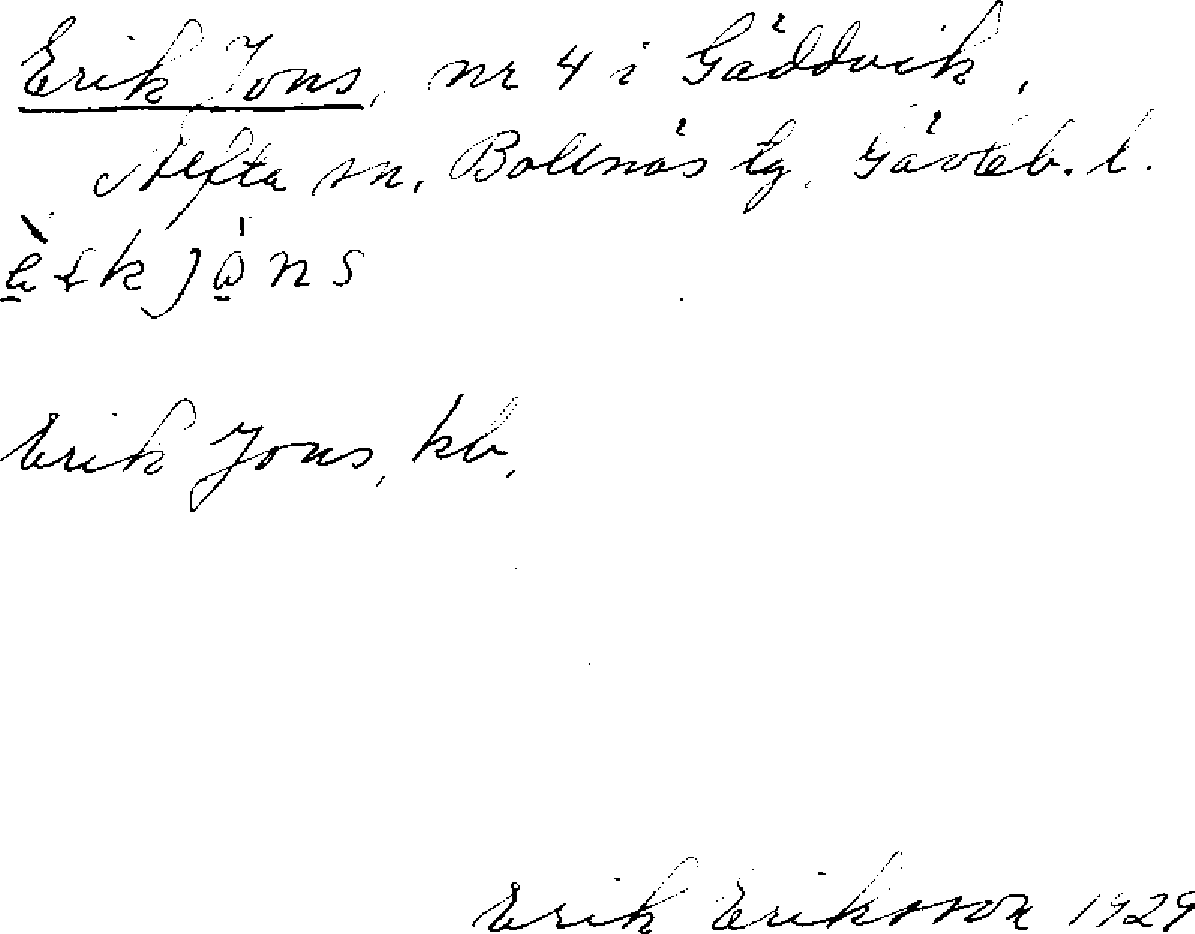 Erik Jons, nr 4 i Gäddvik,
Alfta sn, Bollnäs tg. Gävleb. l.
Erik Jons, kb.
Erik Eriksson 1929